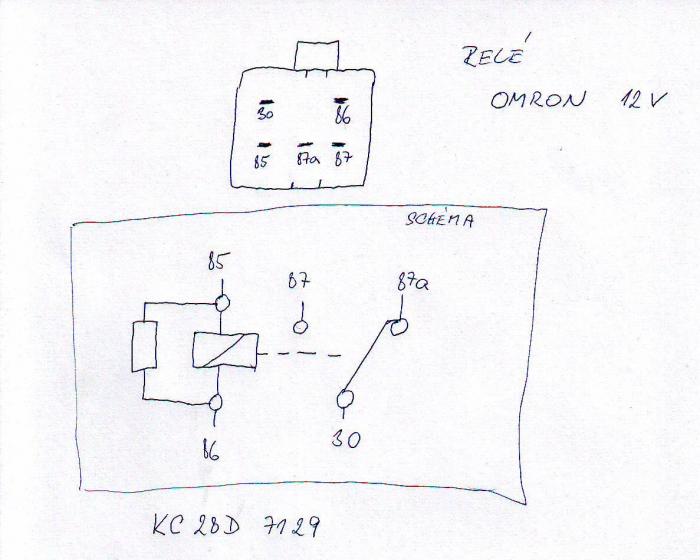 RELÉ
OMRON 12V
30 86
85 87a 87
SCHÉMA
85
87 87a
86 30
KC28D 7129